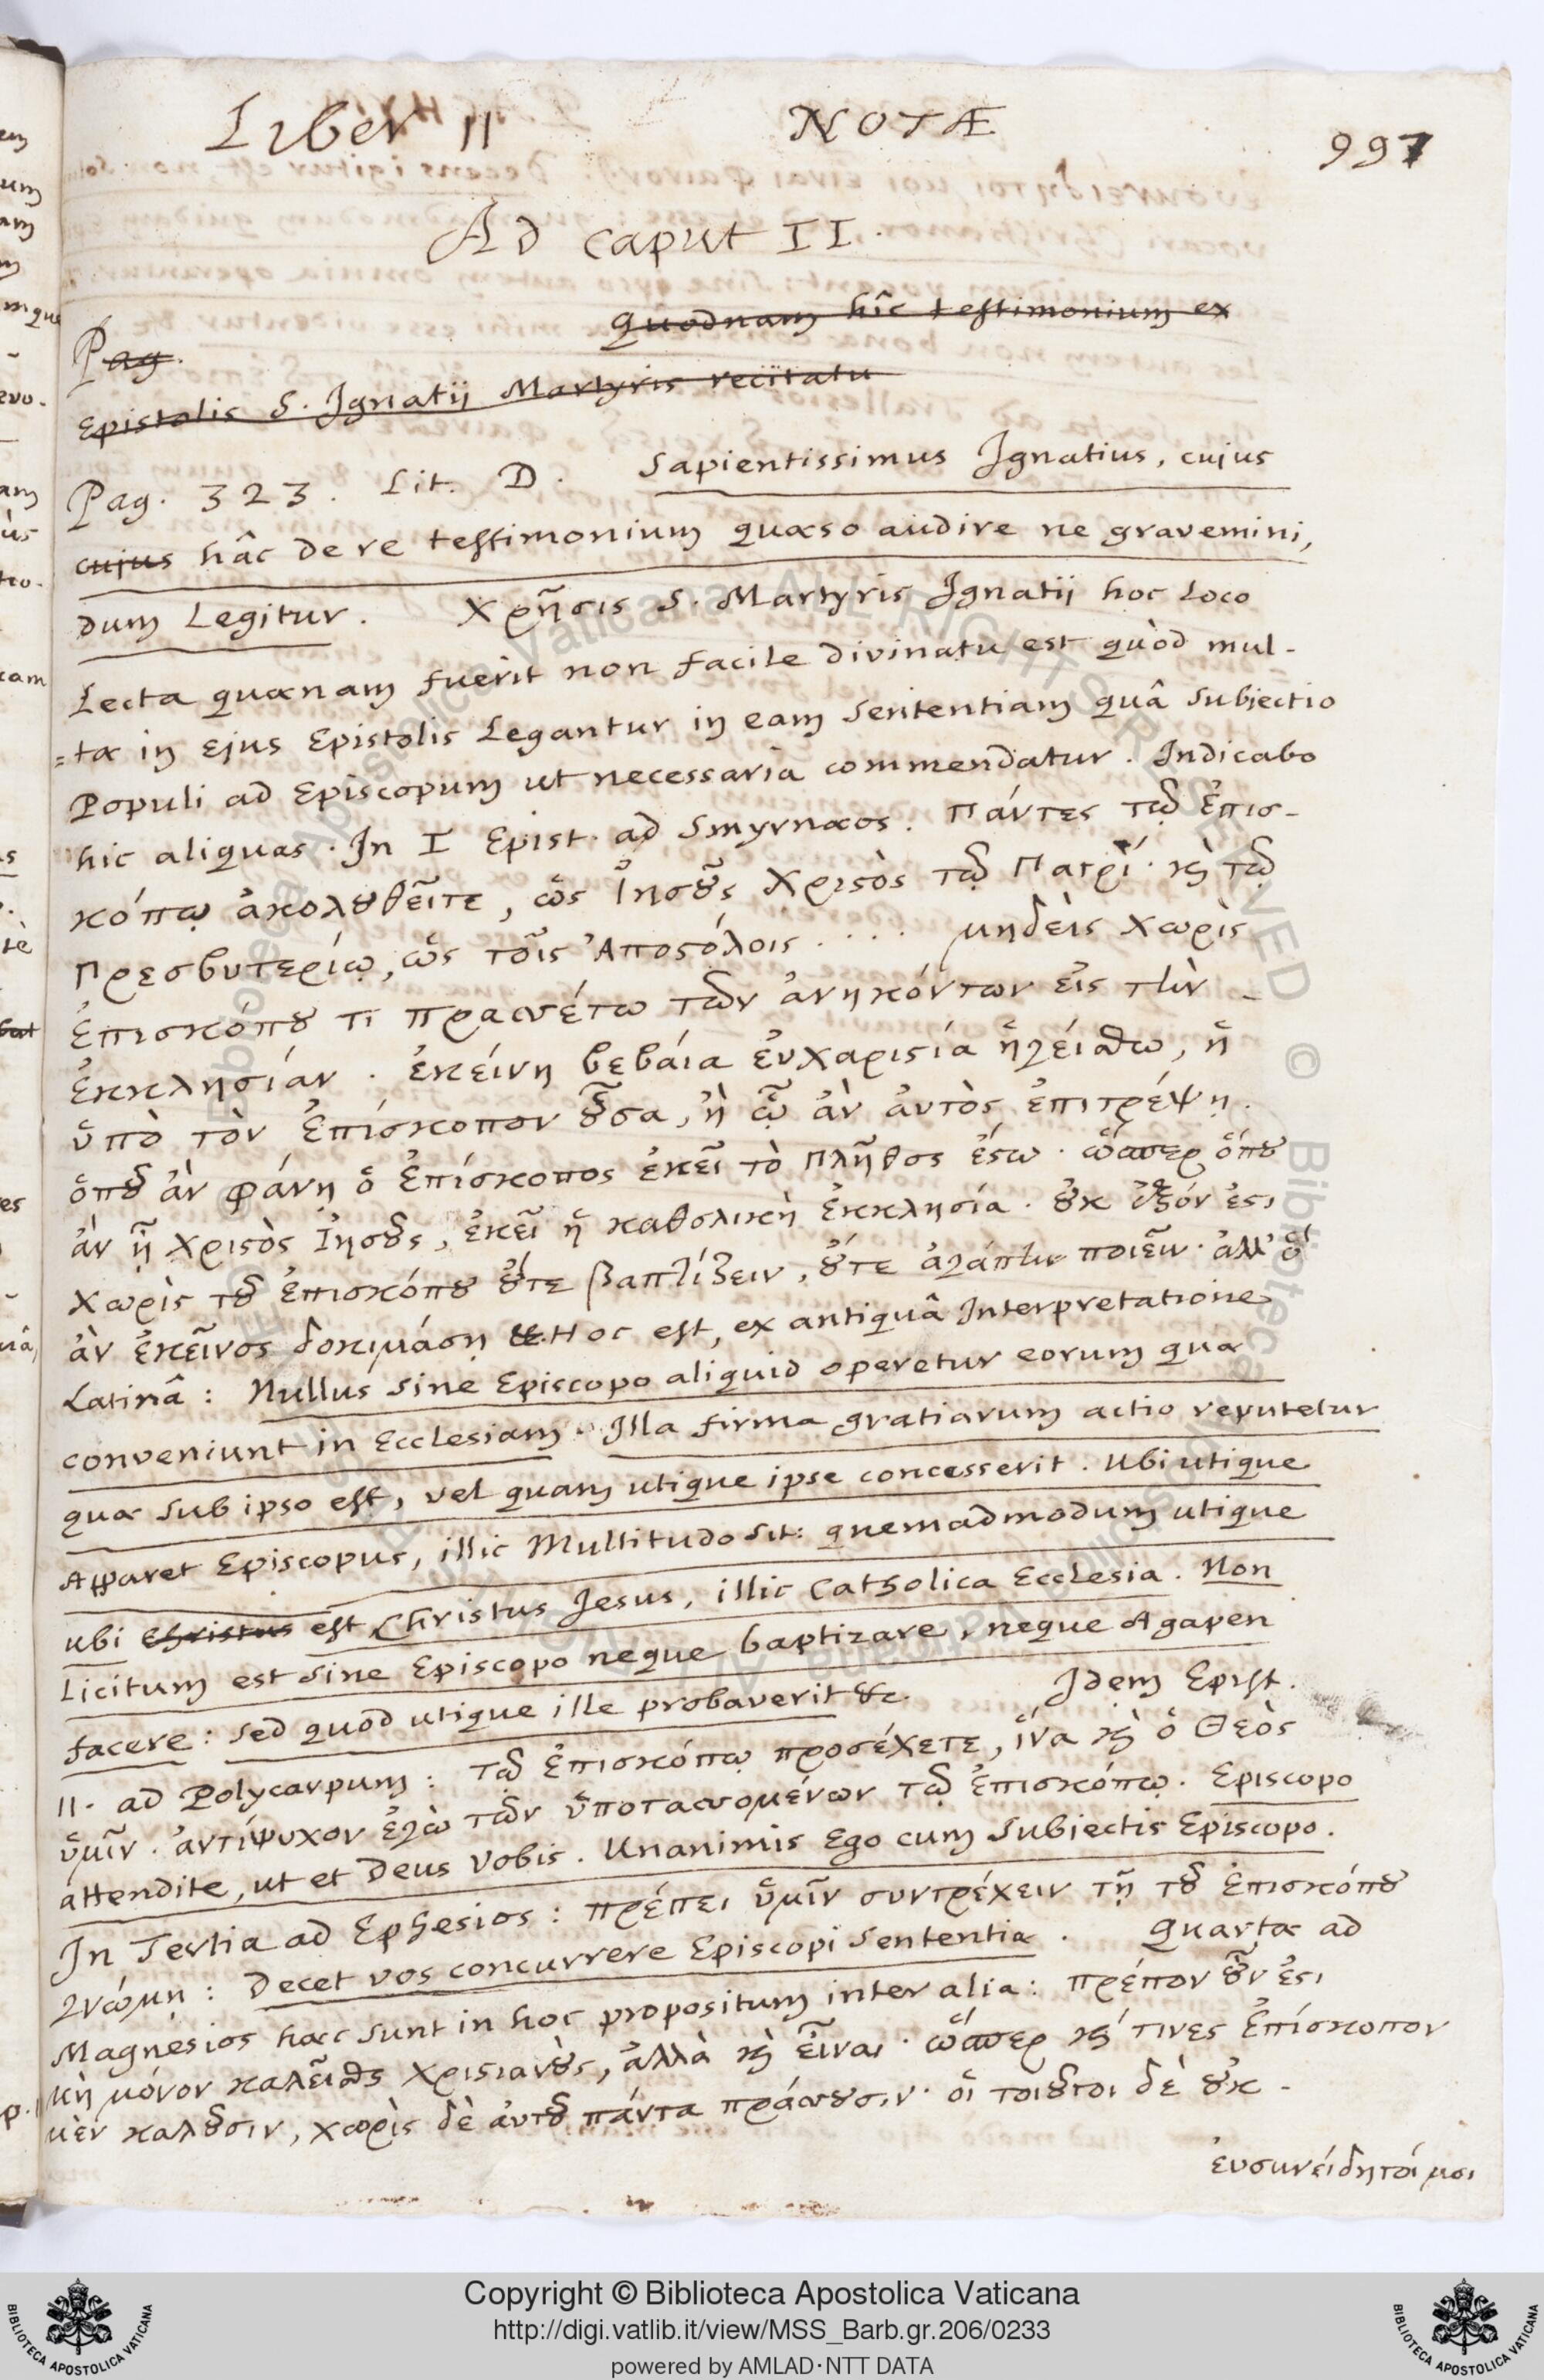 Liber II NOTÆ 997
Ad caput II.
Quodnam hîc testimonium ex
Pag.
Epistolis S. Ignatii Martyris recitatu
Pag. 323. Lit. D. Sapientissimus Ignatius, cujus
cujus hâc de re testimonium quæso audire ne gravemini,
dum Legitur. Χρῆσις S. Martyris Ignatii hoc Loco
Lecta quænam fuerit non facile divinatu est quòd mul-
=ta in ejus Epistolis Legantur in eam sententiam quâ subjectio
Populi ad Episcopum ut necessaria commendatur. Indicabo
hic aliquas. In I Epist. ad Smyrnæos. Πάντες τῷ ἐπισ-
κόπῳ ἀκολȣθεῖτε, ὡς Ἰησȣ͂ς Χριϛὸς τῷ Πατρί· ϗ τῷ
Πρεσβυτερίῳ, ὡς τοῖς Ἀποϛόλοις .... μηδεὶς χωρὶς
Ἐπισκόπȣ τι πρασσέτω τῶν ἀνηκόντων εἰς τὴν
ἐκκλησίαν. ἐκείνη βεβάια ἐυχαριϛία ἡγείσθω, ἡ
ὑπὸ τὸν Ἐπίσκοπον ȣ͂σα, ἢ ᾧ ἀν ἀυτὸς ἐπιτρέψῃ.
ὁπȣ ἀν φάνῃ ὁ Ἐπίσκοπος ἐκεῖ τὸ πλῆθος ἔϛω· ὥσπερ ὅπȣ
ἀν ᾖ Χριϛὸς Ἰησȣ͂ς, ἐκεῖ ἡ καθολικὴ ἐκκλησία. ȣ̓κ ἐξόν ἐϛι
χωρὶς τȣ͂ ἐπισκόπȣ ȣ̓́τε βαπτίζειν, ȣ̓́τε ἀγάπην ποιεῖν· ἀλλ' ὃ
ἀν ἐκεῖνος δοκιμάσῃ &. Hoc est, ex antiquâ Interpretatione
Latinâ: Nullus sine Episcopo aliquid operetur eorum quæ
conveniunt in Ecclesiam. Illa firma gratiarum actio reputetur
quæ sub ipso est, vel quam utique ipse concesserit. Ubi utique
Apparet Episcopus, illic Multitudo sit: quemadmodum utique
ubi Christus est Christus Jesus, illic Catholica Ecclesia. Non
Licitum est sine Episcopo neque baptizare, neque Agapen
facere: sed quod utique ille probaverit &c. Idem Epist.
II. ad Polycarpum: τῷ ἐπισκόπῳ προσέχετε, ἵνα ϗ ὁ Θεὸς
ὑμῖν. ἀντίψυχον ἐγὼ τῶν ὑποτασσομένων τῷ ἐπισκόπῳ. Episcopo
attendite, ut et Deus vobis. Unanimis Ego cum subiectis Episcopo.
In Tertia ad Ephesios: πρέπει ὑμῖν συντρέχειν τῇ τȣ͂ ἐπισκόπȣ
γνώμῃ: Decet vos concurrere Episcopi sententiæ. Quarta ad
Magnesios hæc sunt in hoc propositum inter alia: πρέπον ȣ͂ν ἐϛι
μὴ μόνον καλεῖσθαι Χριϛιανȣ̀ς, ἀλλὰ ϗ εἶναι· ὥσπερ ϗ τινες Ἐπίσκοπον
μὲν καλȣ͂σιν, χωρὶς δὲ ἀυτȣ͂ πάντα πράσσȣσιν· οἱ τοιȣ͂τοι δὲ ȣ̓κ -
ἐυσυνείδητοί μοι
Copyright © Biblioteca Apostolica Vaticana
http://digi.vatlib.it/view/MSS_Barb.gr.206/0233
powered by AMLAD·NTT DATA